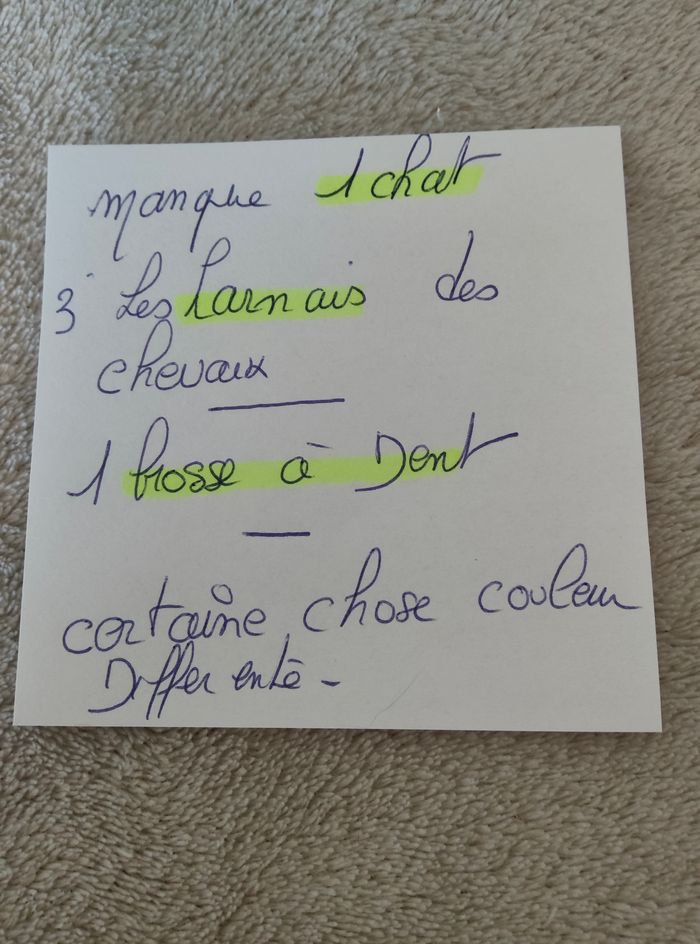 manque 1 chat
3 Les harnais des
chevaux
1 brosse à Dent
certaine chose couleur
Differente -